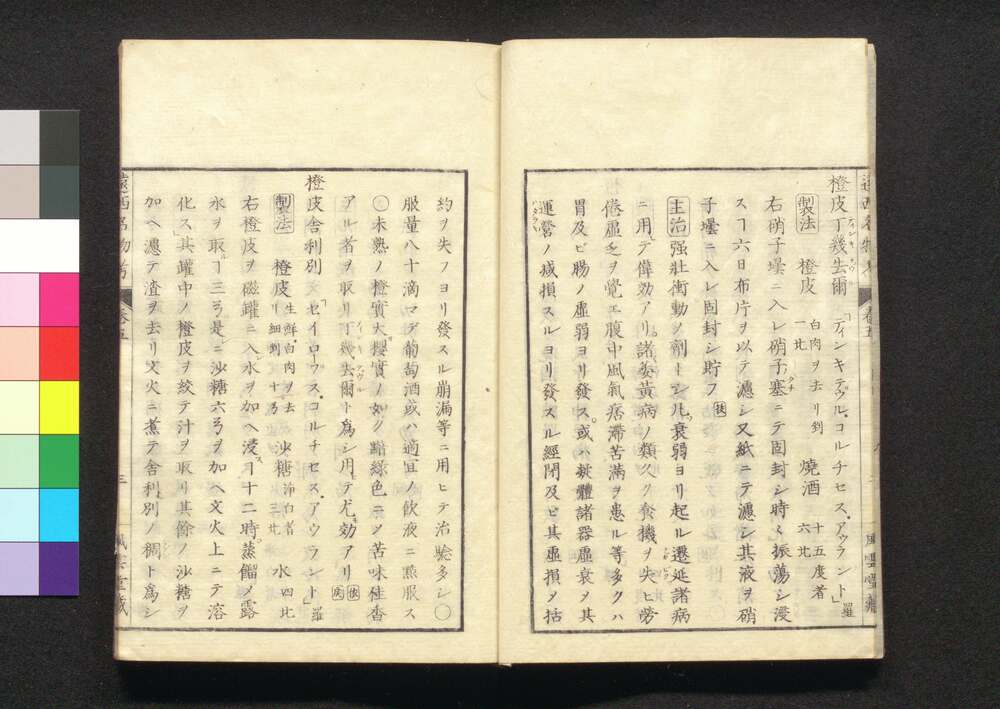 橙皮丁幾去爾「ティンキテゥル、コルチセス、アウラント」羅
製法 橙皮 白肉ヲ去リ剉 一匕 燒酒 十五度者 六匕
右硝子壜ニ入レ硝子塞ニテ固封シ時々振蕩シ浸
スヿ六日布片ヲ以テ濾シ又紙ニテ濾シ其液ヲ硝
子壜ニ入レ固封シ貯フ
主治 强壯衝動ノ劑トシ凡衰弱ヨリ起ル遷延諸病
ニ用テ偉効アリ諸萎黃病ノ類久ク食機ヲ失ヒ勞
倦羸乏ヲ覺エ腹中風氣痞滯苦滿ヲ患ル等多クハ
胃及ビ腸ノ虛弱ヨリ發ス或ハ肢體諸器虛衰シ其
運營ノ減損スルヨリ發スル經閉及ヒ其虛損シ括
遠西名物考 卷五 三 風雲堂藏
約ヲ失フヨリ發スル崩漏等ニ用ヒテ治驗多シ〇
服量八十滴マデ葡萄酒或ハ適宜ノ飲液ニ㸃服ス
〇未熟ノ橙實大サ櫻實ノ如ク黯綠色ニシテ苦味佳香
アル者ヲ取リ丁幾去爾ト爲シ用テ尤効アリ
橙皮舎利別「セイローフス、コルチセス、アウラント」羅
製法 橙皮 生鮮白肉ヲ去リ細剉 十ゟ 沙糖 沛白者 三匕 水 四匕
右橙皮ヲ磁罐ニ入水ヲ加ヘ浸スヿ十二時蒸餾シ露
水ヲ取ルヿ三ゟ是ニ沙糖六ゟヲ加ヘ文火上ニテ溶
化ス其罐中ノ橙皮ヲ絞テ汁ヲ取リ其餘ノ沙糖ヲ
加ヘ濾テ渣ヲ去リ文火ニ煮テ舎利別ノ稠ト爲シ